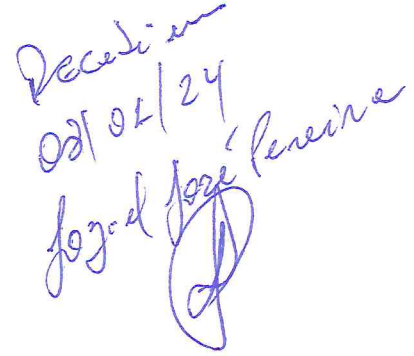 Recebi em
02/02/24
Joziel José Pereira